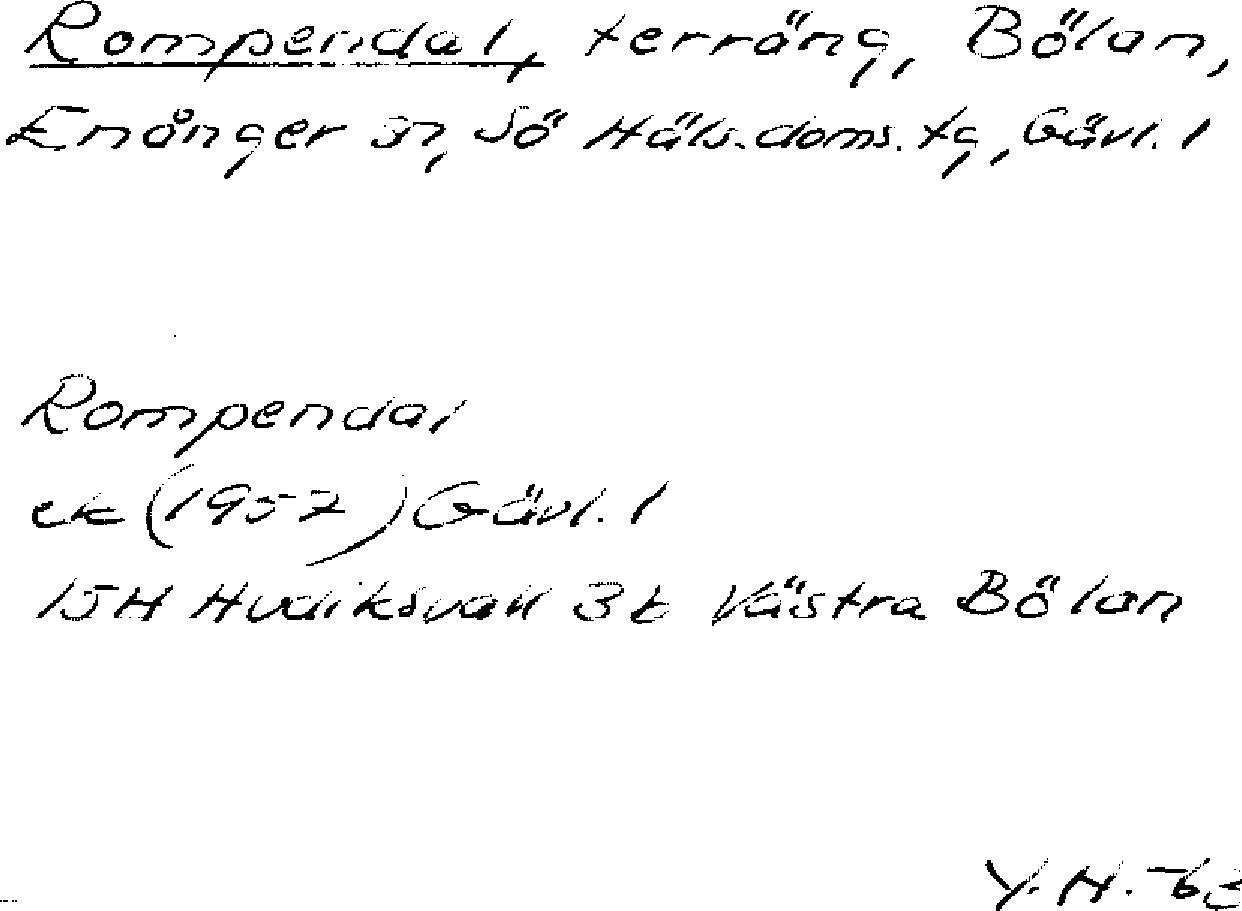 Rompendal, terräng, Bölan,
Enånger sn, Sö Häls. doms. tg, Gävl. l
Rompendal
ek (1957) Gävl. l
15H Hudiksvall 3b Västra Bölan
Y. H. -63